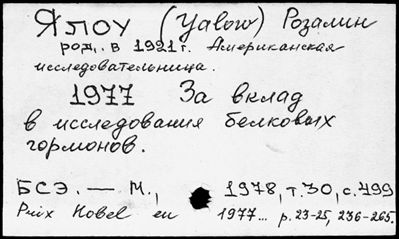 Ялоу (Yalow) Розалин
род. в 1921 г. Американская
исследовательница.
1977 За вклад
в исследования белковых
гормонов.
БСЭ. — М., 1978, т.30, с.499
Prix Nobel en 1977... p. 23-25, 236-265.